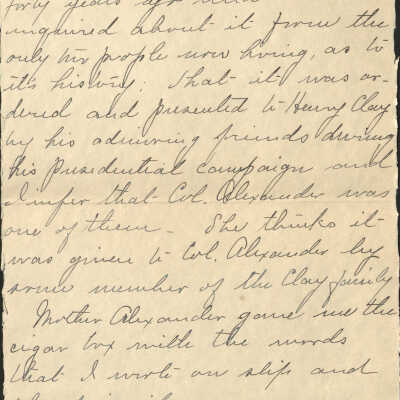 forty years ago and
inquired about it from the
only two people now living, as to
it's history: That it was or-
dered and presented to Henry Clay
by his admiring friends during
his Presidential campaign and
I infer that Col. Alexander was
one of them - She thinks it
was given to Col. Alexander by
some member of the Clay family
Mother Alexander gave me the
cigar box with the words
that I wrote on slip and